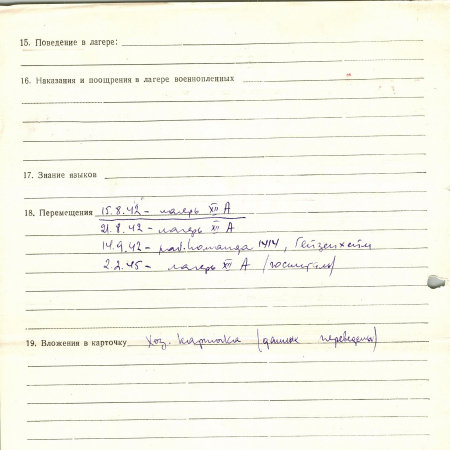 15. Поведение в лагере:
16. Наказания и поощрения в лагере военнопленных
17. Знание языков
18. Перемещения 15.8.42 – лагерь XII А
21.8.42 – лагерь XII А
14.9.42 – раб. команда 1414, Гейзенхейм
2.2.45 – лагерь XII А /госпиталь/
19. Вложения в карточку хоз. карточка (данные переведены)